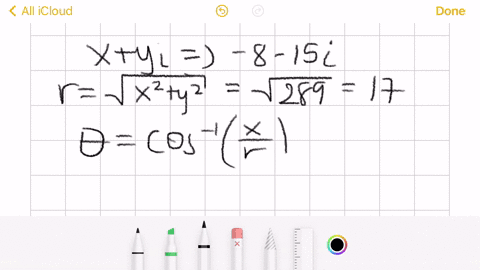 All iCloud Done
x+yi => -8-15i
r = √(x²+y²) = √289 = 17
θ = cos⁻¹(x/r)